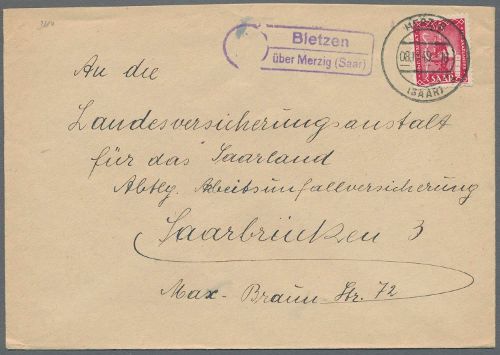 Bietzen
über Merzig (Saar)
MERZIG
(SAAR)
SAAR
An die
Landesversicherungsanstalt
für das Saarland
Abtlg. Arbeitsunfallversicherung
Saarbrücken 3
Max-Braun-Str. 72